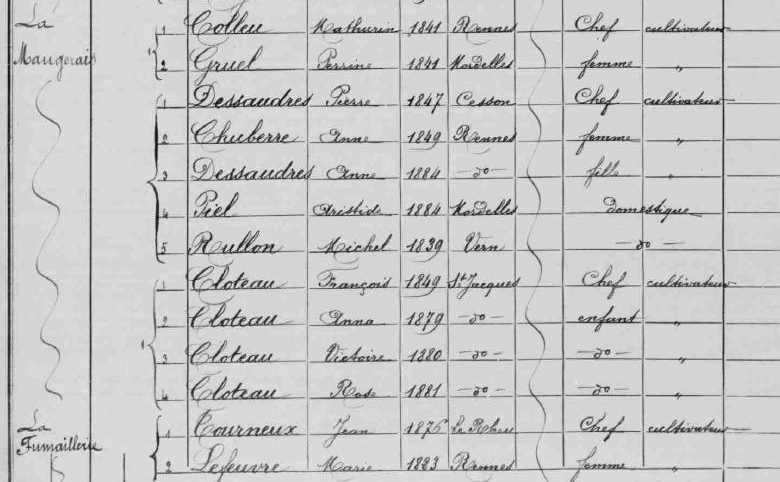 La 1 Colleu Mathurin 1841 Rennes Chef cultivateur
Maugerais 2 Gruel Perrine 1841 Mordelles femme "
1 Dessaudres Pierre 1847 Cesson Chef cultivateur
2 Chuberre Anne 1849 Rennes femme "
3 Dessaudres Anne 1884 — do — fille "
4 Piel Aristide 1884 Mordelles domestique
5 Rullon Michel 1839 Vern — do —
1 Cloteau François 1849 St Jacques Chef cultivateur
2 Cloteau Anna 1879 — do — enfant "
3 Cloteau Victoire 1880 — do — — do — "
4 Cloteau Rose 1881 — do — — do — "
La 1 Tourneux Jean 1876 Le Rheu Chef cultivateur
Fumaillerie 2 Lefeuvre Marie 1883 Rennes femme "